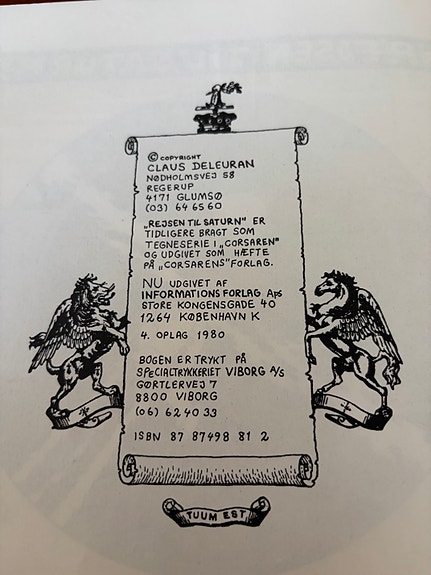 © COPYRIGHT
CLAUS DELEURAN
NØDHOLMSVEJ 58
REGERUP
4171 GLUMSØ
(03) 64 65 60
„REJSEN TIL SATURN" ER
TIDLIGERE BRAGT SOM
TEGNESERIE I „CORSAREN"
OG UDGIVET SOM HÆFTE
PÅ „CORSARENS" FORLAG.
NU UDGIVET AF
INFORMATIONS FORLAG Aps
STORE KONGENSGADE 40
1264 KØBENHAVN K
4. OPLAG 1980
BOGEN ER TRYKT PÅ
SPECIALTRYKKERIET VIBORG A/S
GØRTLERVEJ 7
8800 VIBORG
(06) 62 40 33
ISBN 87 87498 81 2
TUUM EST